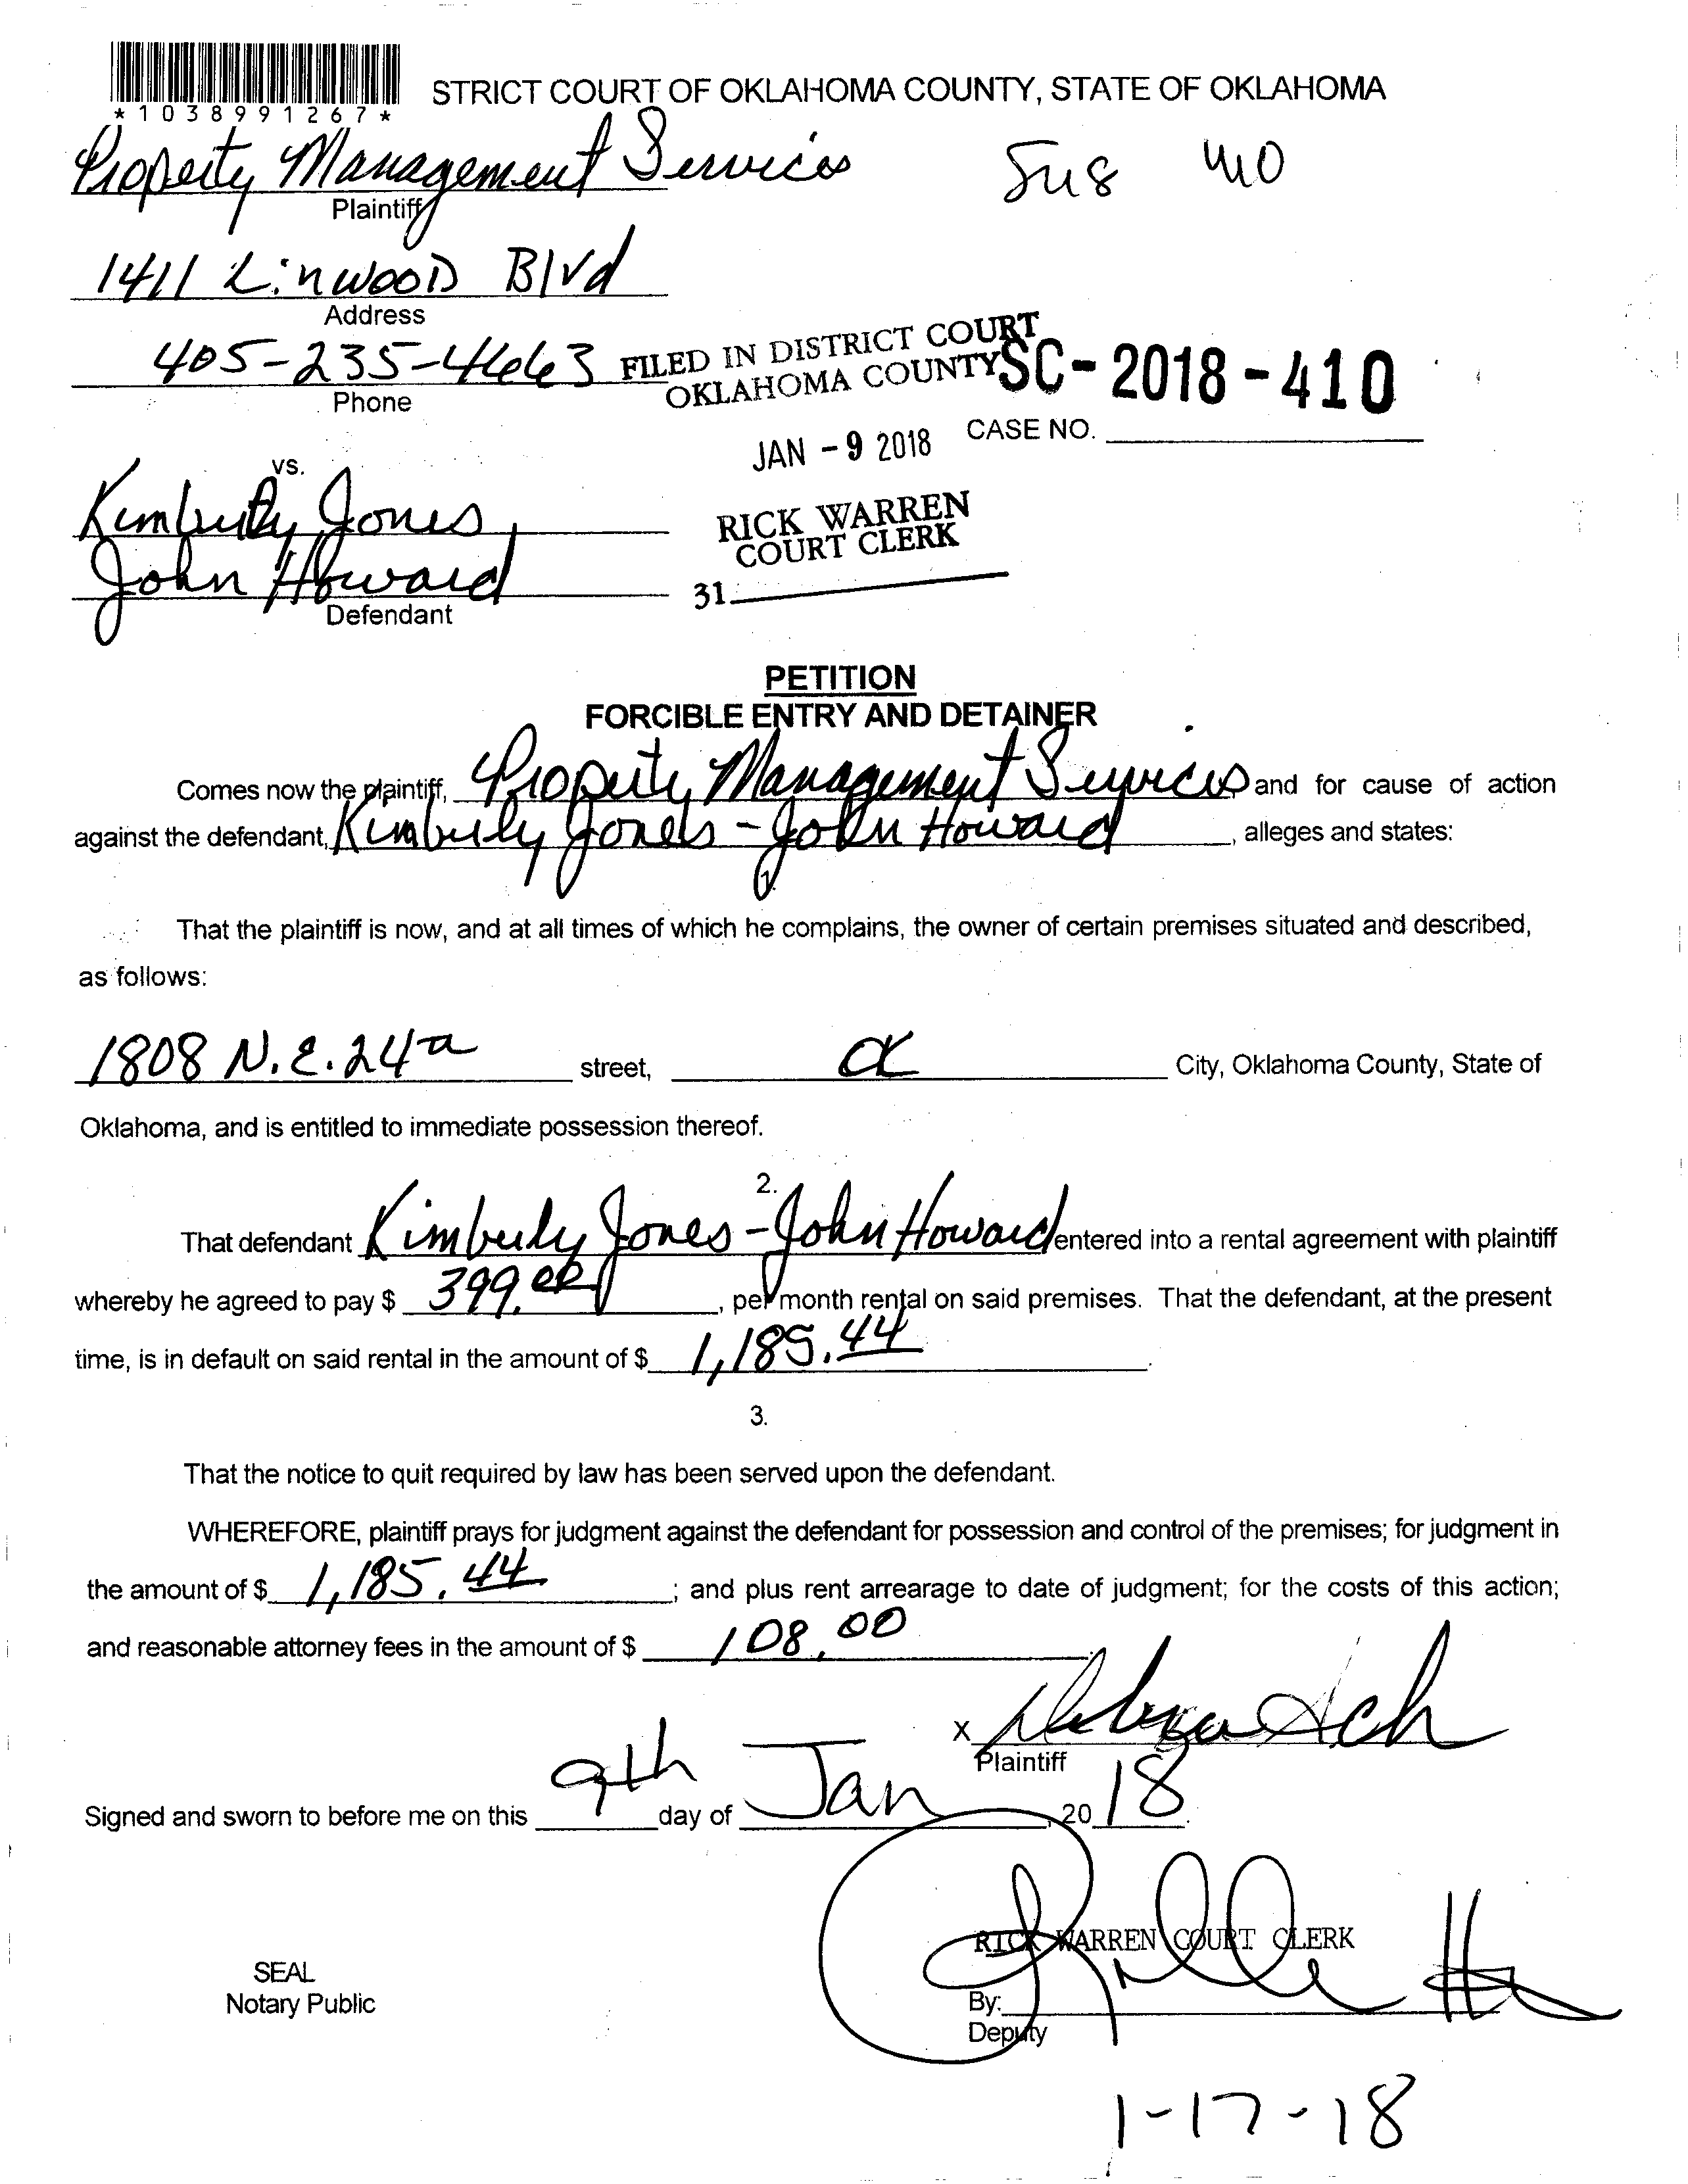 *1038991267*
STRICT COURT OF OKLAHOMA COUNTY, STATE OF OKLAHOMA
Property Management Services
Plaintiff
1411 Linwood Blvd
Address
405-235-4663
Phone
FILED IN DISTRICT COURT
OKLAHOMA COUNTY
SC-2018-410
CASE NO.
JAN -9 2018
vs.
Kimberly Jones,
John Howard
Defendant
RICK WARREN
COURT CLERK
31
PETITION
FORCIBLE ENTRY AND DETAINER
Comes now the plaintiff, Property Management Services and for cause of action
against the defendant, Kimberly Jones - John Howard, alleges and states:
1.
That the plaintiff is now, and at all times of which he complains, the owner of certain premises situated and described,
as follows:
1808 N.E. 24 street, City, Oklahoma County, State of
Oklahoma, and is entitled to immediate possession thereof.
2.
That defendant Kimberly Jones - John Howard entered into a rental agreement with plaintiff
whereby he agreed to pay $ 399.00, per month rental on said premises. That the defendant, at the present
time, is in default on said rental in the amount of $ 1,185.44.
3.
That the notice to quit required by law has been served upon the defendant.
WHEREFORE, plaintiff prays for judgment against the defendant for possession and control of the premises; for judgment in
the amount of $ 1,185.44; and plus rent arrearage to date of judgment; for the costs of this action;
and reasonable attorney fees in the amount of $ 108.00.
X
Plaintiff
Signed and sworn to before me on this 9th day of Jan, 20 18.
RICK WARREN COURT CLERK
SEAL
Notary Public
By:
Deputy
1-17-18